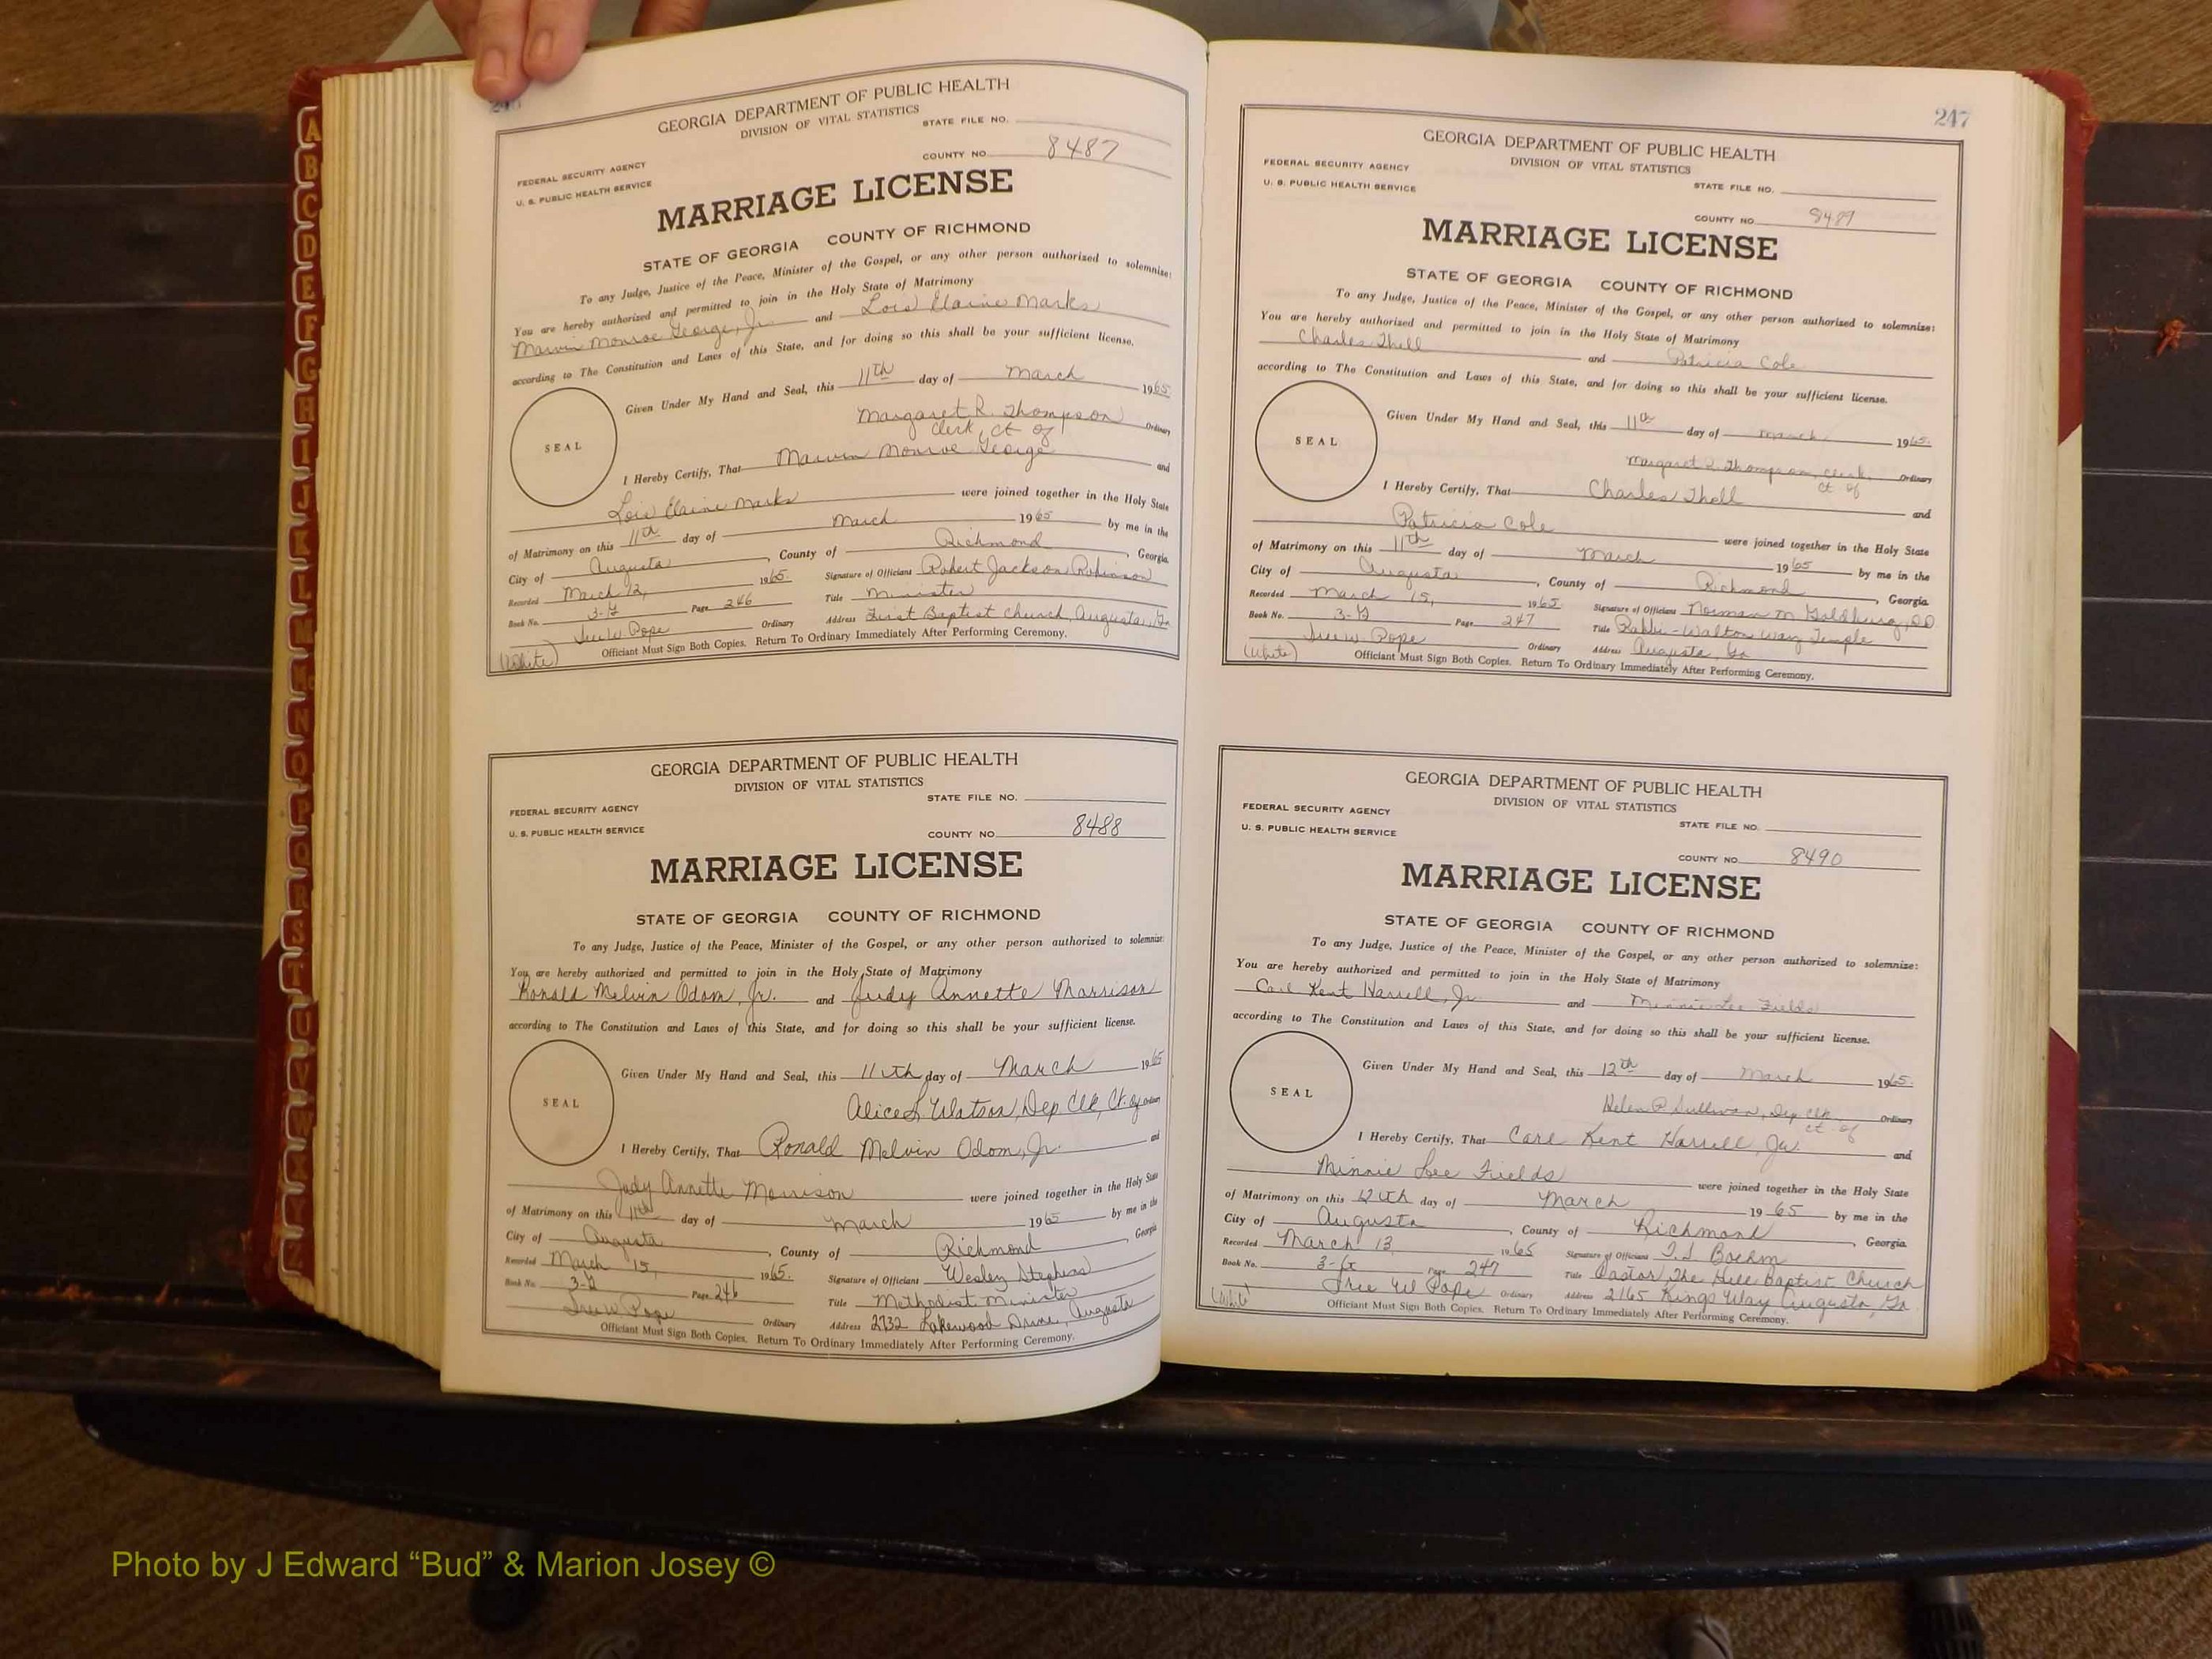 A
B
C
D
E
F
G
H
I
J
K
L
M
Mc
N
O
P
Q
R
S
T
U
V
W
X
Y
Z
GEORGIA DEPARTMENT OF PUBLIC HEALTH
DIVISION OF VITAL STATISTICS
STATE FILE NO.
FEDERAL SECURITY AGENCY
COUNTY NO. 8487
U. S. PUBLIC HEALTH SERVICE
MARRIAGE LICENSE
STATE OF GEORGIA COUNTY OF RICHMOND
To any Judge, Justice of the Peace, Minister of the Gospel, or any other person authorized to solemnize:
You are hereby authorized and permitted to join in the Holy State of Matrimony
Marvin Monroe George, Jr. and Lois Elaine Marks
according to The Constitution and Laws of this State, and for doing so this shall be your sufficient license.
Given Under My Hand and Seal, this 11th day of March 1965
Margaret R. Thompson Ordinary
Clerk, Ct of
SEAL
I Hereby Certify, That Marvin Monroe George and
Lois Elaine Marks were joined together in the Holy State
of Matrimony on this 11th day of March 1965 by me in the
City of Augusta, County of Richmond, Georgia.
Recorded March 12, 1965. Signature of Officiant Robert Jackson Robinson
Book No. 3-G Page 246 Title Minister
Address First Baptist Church, Augusta, Ga
W. Pope Ordinary
(White) Officiant Must Sign Both Copies. Return To Ordinary Immediately After Performing Ceremony.
GEORGIA DEPARTMENT OF PUBLIC HEALTH
DIVISION OF VITAL STATISTICS
STATE FILE NO.
FEDERAL SECURITY AGENCY
U. S. PUBLIC HEALTH SERVICE COUNTY NO. 8488
MARRIAGE LICENSE
STATE OF GEORGIA COUNTY OF RICHMOND
To any Judge, Justice of the Peace, Minister of the Gospel, or any other person authorized to solemnize
You are hereby authorized and permitted to join in the Holy State of Matrimony
Ronald Melvin Odom, Jr. and Judy Annette Morrison
according to The Constitution and Laws of this State, and for doing so this shall be your sufficient license.
Given Under My Hand and Seal, this 11th day of March 1965
Alice L. Watson, Dep Clk, Ct. of Ordinary
SEAL
I Hereby Certify, That Ronald Melvin Odom, Jr. and
Judy Annette Morrison were joined together in the Holy State
of Matrimony on this 11th day of March 1965 by me in the
City of Augusta, County of Richmond Georgia
Recorded March 15, 1965. Signature of Officiant Wesley Stephens
Book No. 3-G Page 246 Title Methodist Minister
W. Pope Ordinary Address 2732 Lakewood Drive, Augusta
Officiant Must Sign Both Copies. Return To Ordinary Immediately After Performing Ceremony.
247
GEORGIA DEPARTMENT OF PUBLIC HEALTH
DIVISION OF VITAL STATISTICS
FEDERAL SECURITY AGENCY
U. S. PUBLIC HEALTH SERVICE STATE FILE NO.
COUNTY NO. 8489
MARRIAGE LICENSE
STATE OF GEORGIA COUNTY OF RICHMOND
To any Judge, Justice of the Peace, Minister of the Gospel, or any other person authorized to solemnize:
You are hereby authorized and permitted to join in the Holy State of Matrimony
Charles Thell and Patricia Cole
according to The Constitution and Laws of this State, and for doing so this shall be your sufficient license.
Given Under My Hand and Seal, this 11th day of March 1965.
Margaret R. Thompson, Clerk, Ordinary
ct of
SEAL
I Hereby Certify, That Charles Thell and
Patricia Cole were joined together in the Holy State
of Matrimony on this 11th day of March 1965 by me in the
City of Augusta, County of Richmond, Georgia.
Recorded March 15, 1965. Signature of Officiant Norman M Goldburg, DD
Book No. 3-G Page 247 Title Rabbi-Walton Way Temple
W. Pope Ordinary Address Augusta, Ga
(White) Officiant Must Sign Both Copies. Return To Ordinary Immediately After Performing Ceremony.
GEORGIA DEPARTMENT OF PUBLIC HEALTH
DIVISION OF VITAL STATISTICS
FEDERAL SECURITY AGENCY
U. S. PUBLIC HEALTH SERVICE STATE FILE NO.
COUNTY NO. 8490
MARRIAGE LICENSE
STATE OF GEORGIA COUNTY OF RICHMOND
To any Judge, Justice of the Peace, Minister of the Gospel, or any other person authorized to solemnize:
You are hereby authorized and permitted to join in the Holy State of Matrimony
Carl Kent Harrell, Jr. and Minnie Lee Fields
according to The Constitution and Laws of this State, and for doing so this shall be your sufficient license.
Given Under My Hand and Seal, this 12th day of March 1965.
Helen P. Sullivan, Dep Clk Ordinary
ct of
SEAL
I Hereby Certify, That Carl Kent Harrell, Jr. and
Minnie Lee Fields were joined together in the Holy State
of Matrimony on this 12th day of March 1965 by me in the
City of Augusta, County of Richmond, Georgia.
Recorded March 13, 1965 Signature of Officiant T. J. Boehm
Book No. 3-G Page 247 Title Pastor, The Hill Baptist Church
W Pope Ordinary Address 2165 Kings Way, Augusta, Ga.
(White) Officiant Must Sign Both Copies. Return To Ordinary Immediately After Performing Ceremony.
Photo by J Edward “Bud” & Marion Josey ©